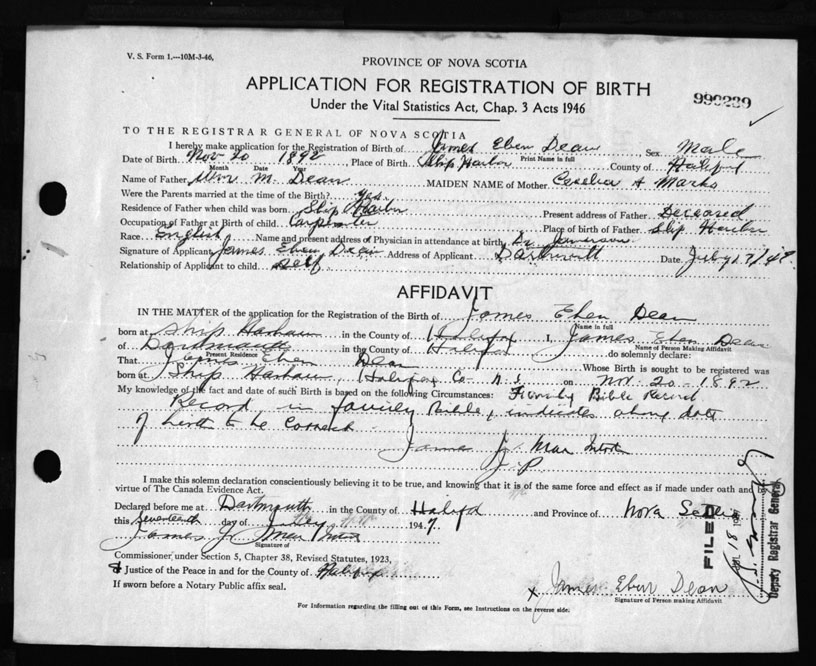 V. S. Form 1.—10M-3-46,
PROVINCE OF NOVA SCOTIA
APPLICATION FOR REGISTRATION OF BIRTH
990239
Under the Vital Statistics Act, Chap. 3 Acts 1946
TO THE REGISTRAR GENERAL OF NOVA SCOTIA
I hereby make application for the Registration of Birth of James Eben Dean Sex Male
Print Name in full
Date of Birth Nov 20 1892, Place of Birth Ship Harbor County of Halifax
Month Date Year
Name of Father Wm M. Dean MAIDEN NAME of Mother A Marks
Were the Parents married at the time of the Birth? Yes
Residence of Father when child was born Ship Harbor Present address of Father Deceased
Occupation of Father at Birth of child Carpenter Place of birth of Father Ship Harbor
Race English Name and present address of Physician in attendance at birth Dr Jamerson
Signature of Applicant James Eben Dean Address of Applicant Dartmouth Date July 17/47
Relationship of Applicant to child Self
AFFIDAVIT
IN THE MATTER of the application for the Registration of the Birth of James Eben Dean
Name in full
born at Ship Harbour in the County of Halifax I, James Eben Dean
Name of Person Making Affidavit
of Dartmouth in the County of Halifax do solemnly declare:
Present Residence
That James Eben Dean Whose Birth is sought to be registered was
born at Ship Harbour, Halifax Co N.S. on Nov. 20 - 1892
My knowledge of the fact and date of such Birth is based on the following Circumstances: Family Bible Record
Record in family Bible, indicates above date
of birth to be correct
James J.
J. P.
I make this solemn declaration conscientiously believing it to be true, and knowing that it is of the same force and effect as if made under oath and by
virtue of The Canada Evidence Act.
Declared before me at Dartmouth in the County of Halifax and Province of Nova Scotia
this Seventeenth day of July 1947.
James J.
Signature of
Commissioner under Section 5, Chapter 38, Revised Statutes, 1923,
Justice of the Peace in and for the County of Halifax
If sworn before a Notary Public affix seal.
x James Eben Dean
Signature of Person Making Affidavit
For Information regarding the filling out of this Form, see Instructions on the reverse side.
FILED
18
Deputy Registrar General